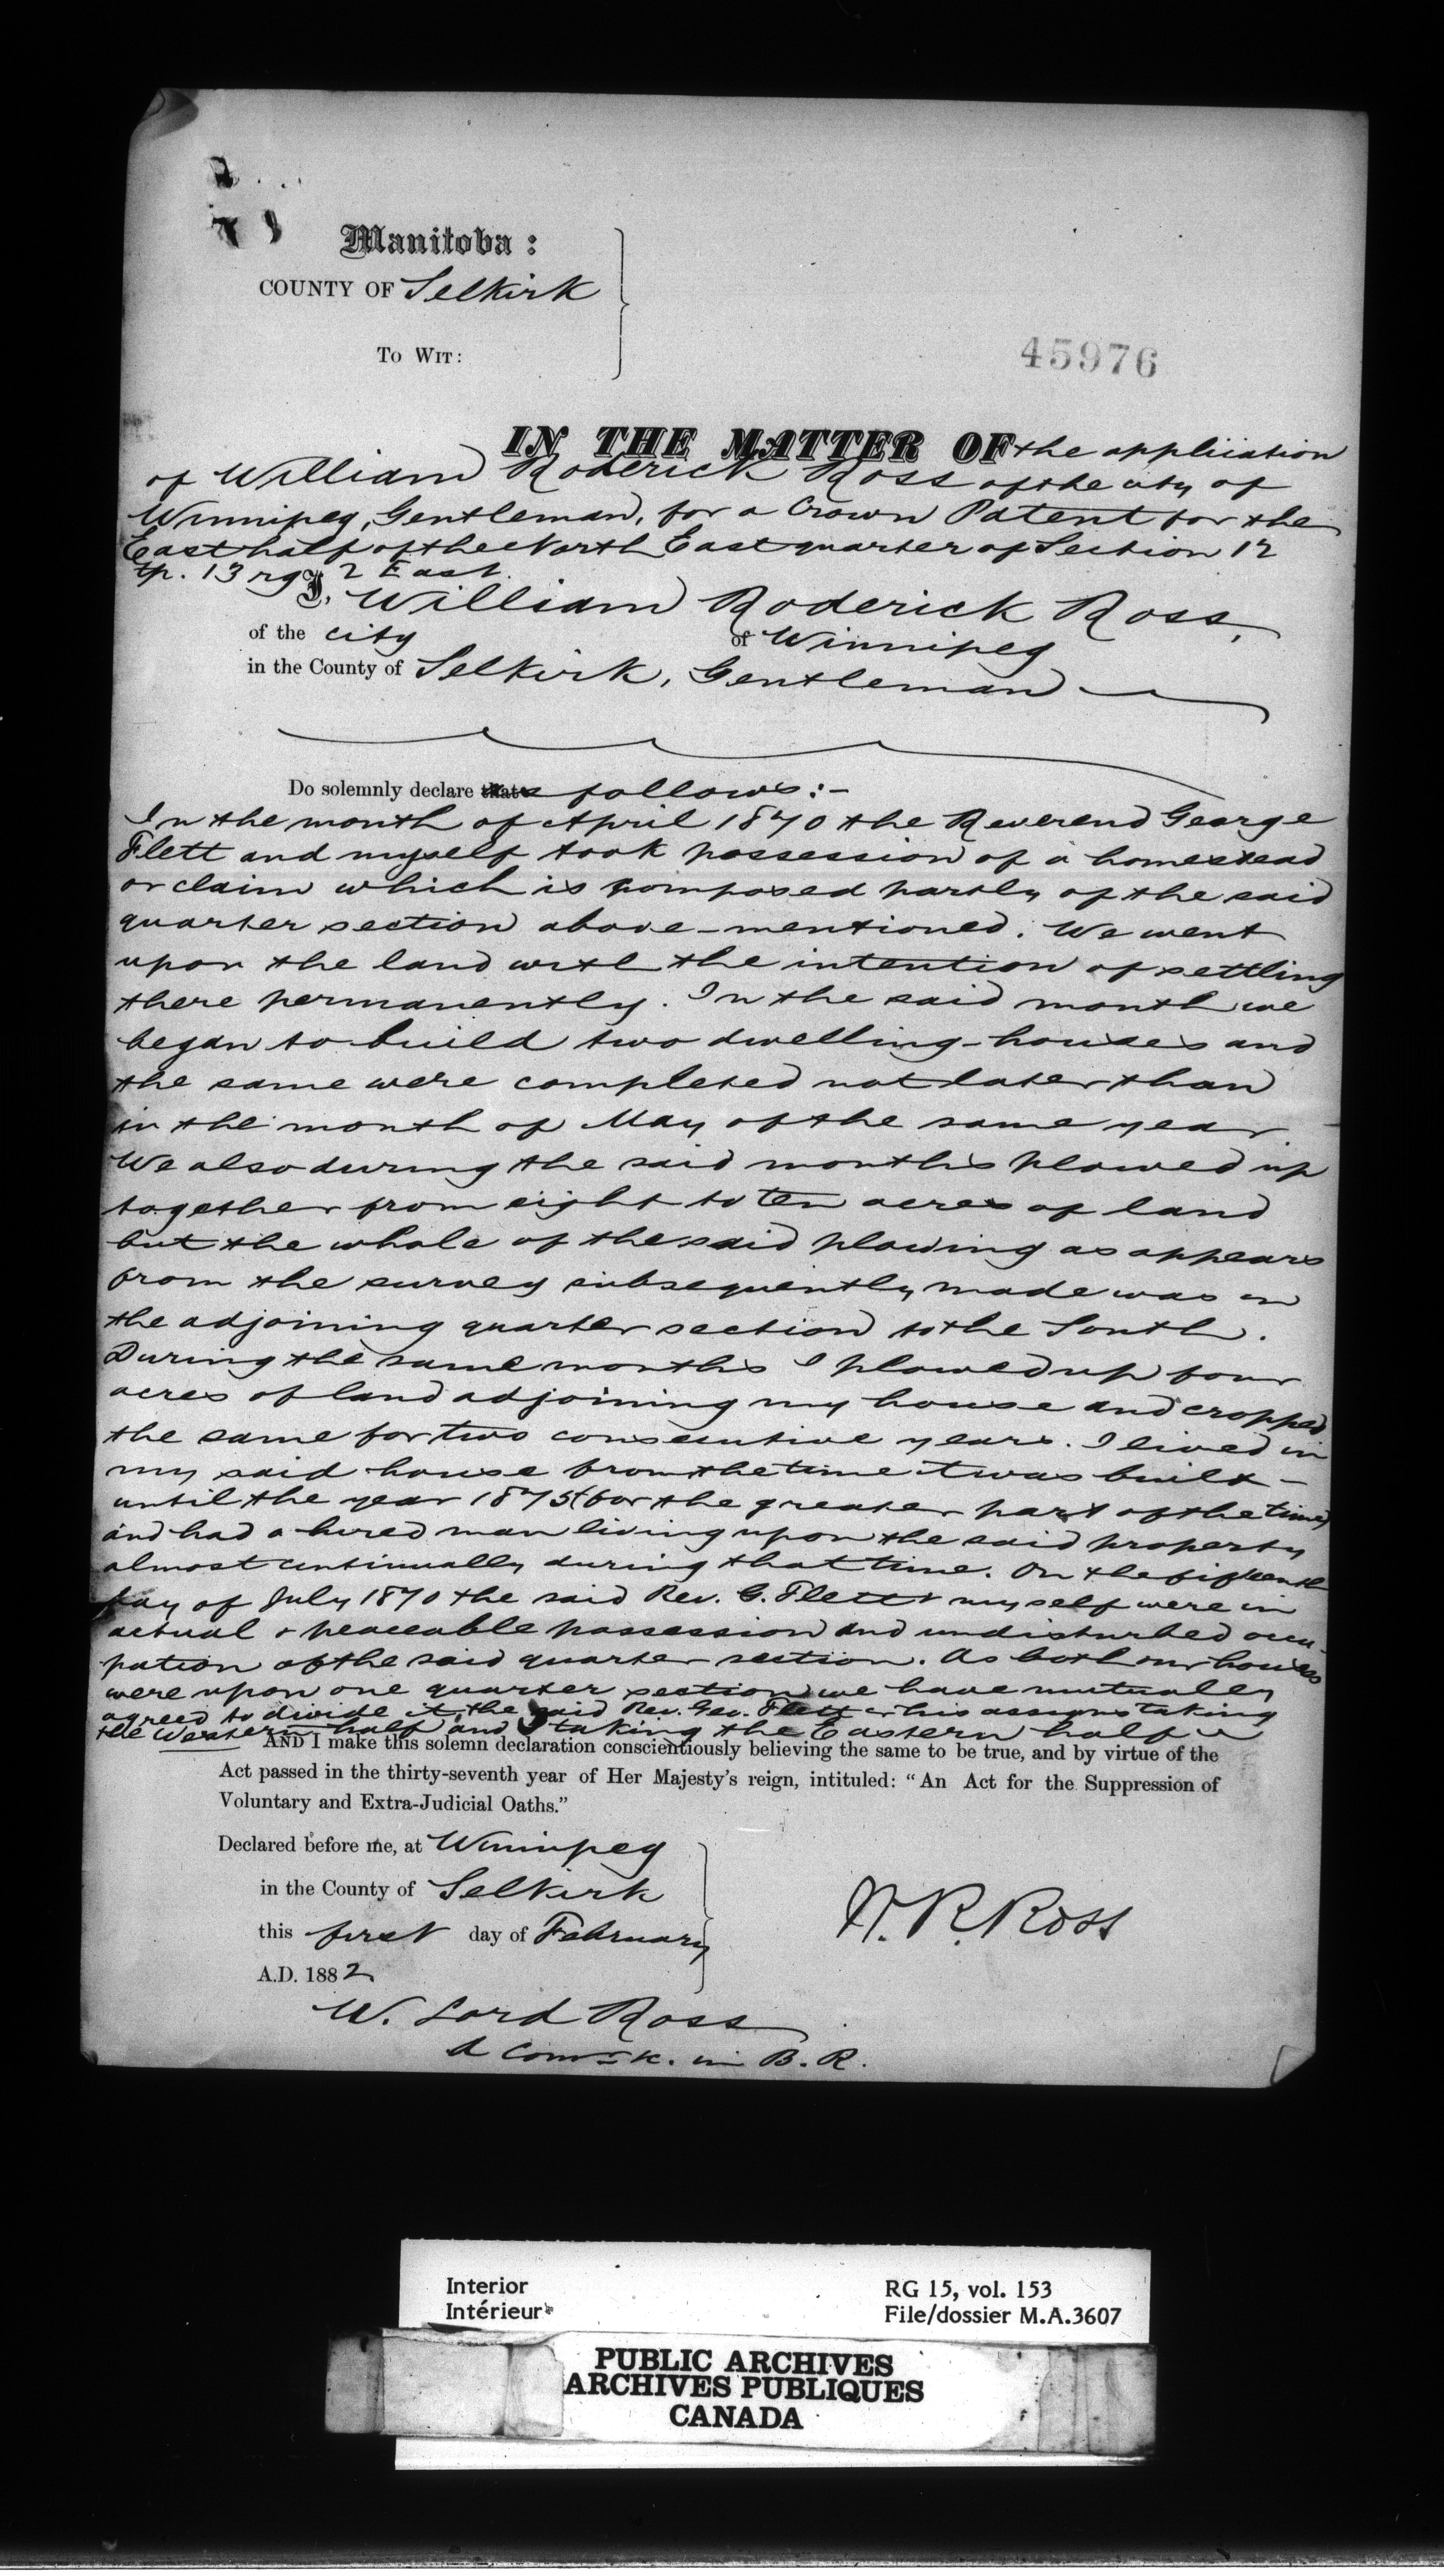 Manitoba :
COUNTY OF Selkirk
TO WIT:
45976
IN THE MATTER OF the application
of William Roderick Ross of the city of
Winnipeg, Gentleman, for a Crown Patent for the
East half of the North East quarter of Section 12
tp. 13 rg 2 East.
I, William Roderick Ross,
of the city of Winnipeg
in the County of Selkirk, Gentleman
Do solemnly declare that as follows:-
In the month of April 1870 the Reverend George
Flett and myself took possession of a homestead
or claim which is composed partly of the said
quarter section above-mentioned. We went
upon the land with the intention of settling
there permanently. In the said month we
began to build two dwelling-houses and
the same were completed not later than
in the month of May of the same year
We also during the said months plowed up
together from eight to ten acres of land
but the whole of the said plowing as appears
from the survey subsequently made was on
the adjoining quarter section to the South.
During the same months I plowed up four
acres of land adjoining my house and cropped
the same for two consecutive years. I lived in
my said house from the time it was built -
until the year 1875 (for the greater part of the time)
and had a hired man living upon the said property
almost continually during that time. On the fifteenth
day of July 1870 the said Rev. G. Flett & myself were in
actual & peaceable possession and undisturbed occu-
pation of the said quarter section. As both our houses
were upon one quarter section we have mutually
agreed to divide it, the said Rev. Geo. Flett or his assigns taking
the Western half and I taking the Eastern half
AND I make this solemn declaration conscientiously believing the same to be true, and by virtue of the
Act passed in the thirty-seventh year of Her Majesty's reign, intituled: "An Act for the Suppression of
Voluntary and Extra-Judicial Oaths."
Declared before me, at Winnipeg
in the County of Selkirk
this first day of February
A.D. 1882
W. R. Ross
W. Lord Ross
A Com in B. R.
Interior
Intérieur
RG 15, vol. 153
File/dossier M.A.3607
PUBLIC ARCHIVES
ARCHIVES PUBLIQUES
CANADA